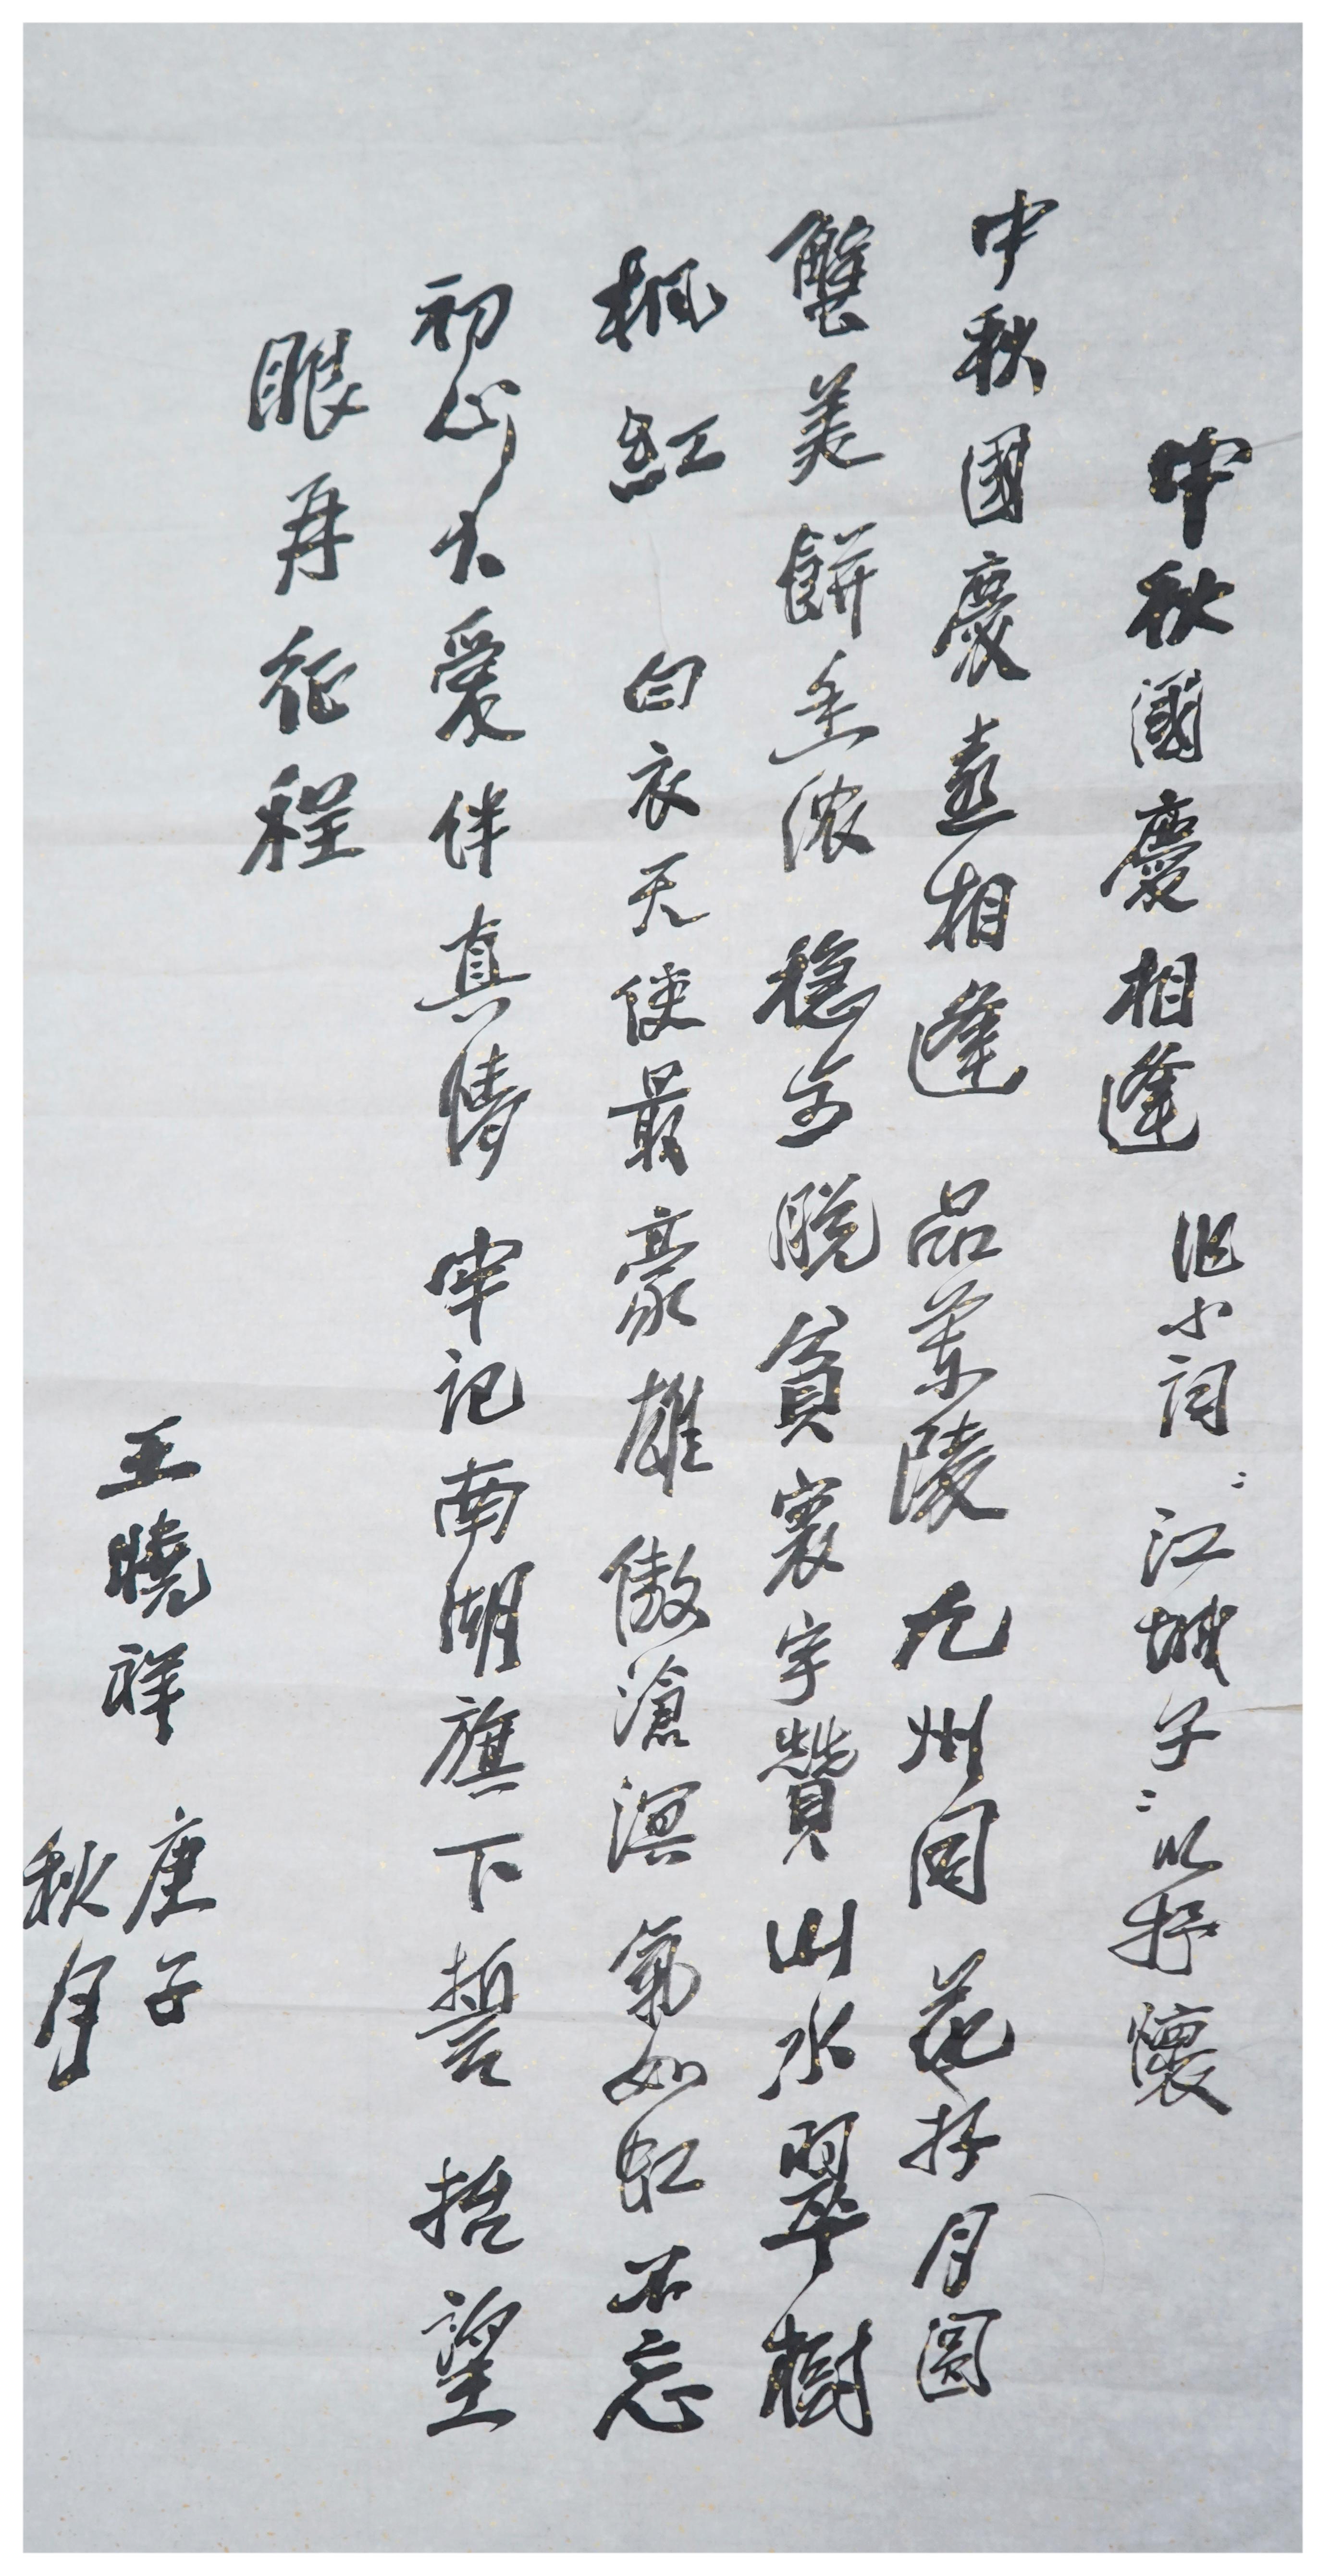 中秋國慶相逢 小词:江城子:以抒懷
中秋國慶喜相逢 品蘭陵 九州同 花好月圓
蟹美餅浓 稳步脱貧寰宇贊 山水翠樹
枫紅 白衣天使最豪雄 傲滄溟 氣如虹 不忘
初心大愛伴真情 牢记南湖旗下誓 抬望
眼再征程
王曉祥 庚子
秋月